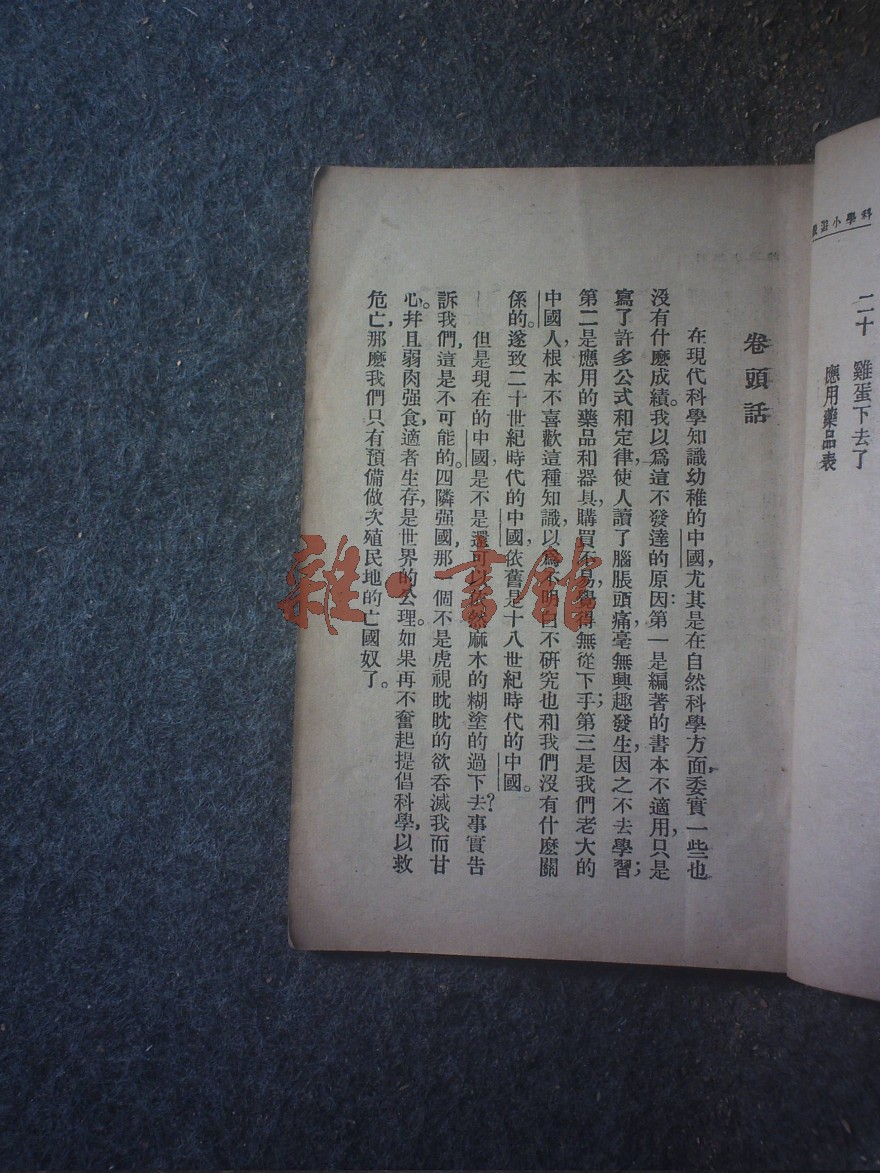 科學小
二十　雞蛋下去了
應用藥品表
卷頭話
在現代科學知識幼稚的中國,尤其是在自然科學方面,委實一些也
沒有什麽成績。我以爲這不發達的原因:第一是編著的書本不適用,只是
寫了許多公式和定律,使人讀了腦脹頭痛,毫無興趣發生,因之不去學習;
第二是應用的藥品和器具,購買不易,覺得無從下手;第三是我們老大的
中國人,根本不喜歡這種知識,以爲不明白不研究也和我們沒有什麽關
係的。遂致二十世紀時代的中國,依舊是十八世紀時代的中國。
但是現在的中國,是不是還可以依然麻木的糊塗的過下去?事實告
訴我們,這是不可能的。四隣强國,那一個不是虎視眈眈的欲吞滅我而甘
心。幷且弱肉强食,適者生存,是世界的公理。如果再不奮起提倡科學,以救
危亡,那麽我們只有預備做次殖民地的亡國奴了。
雜·書館